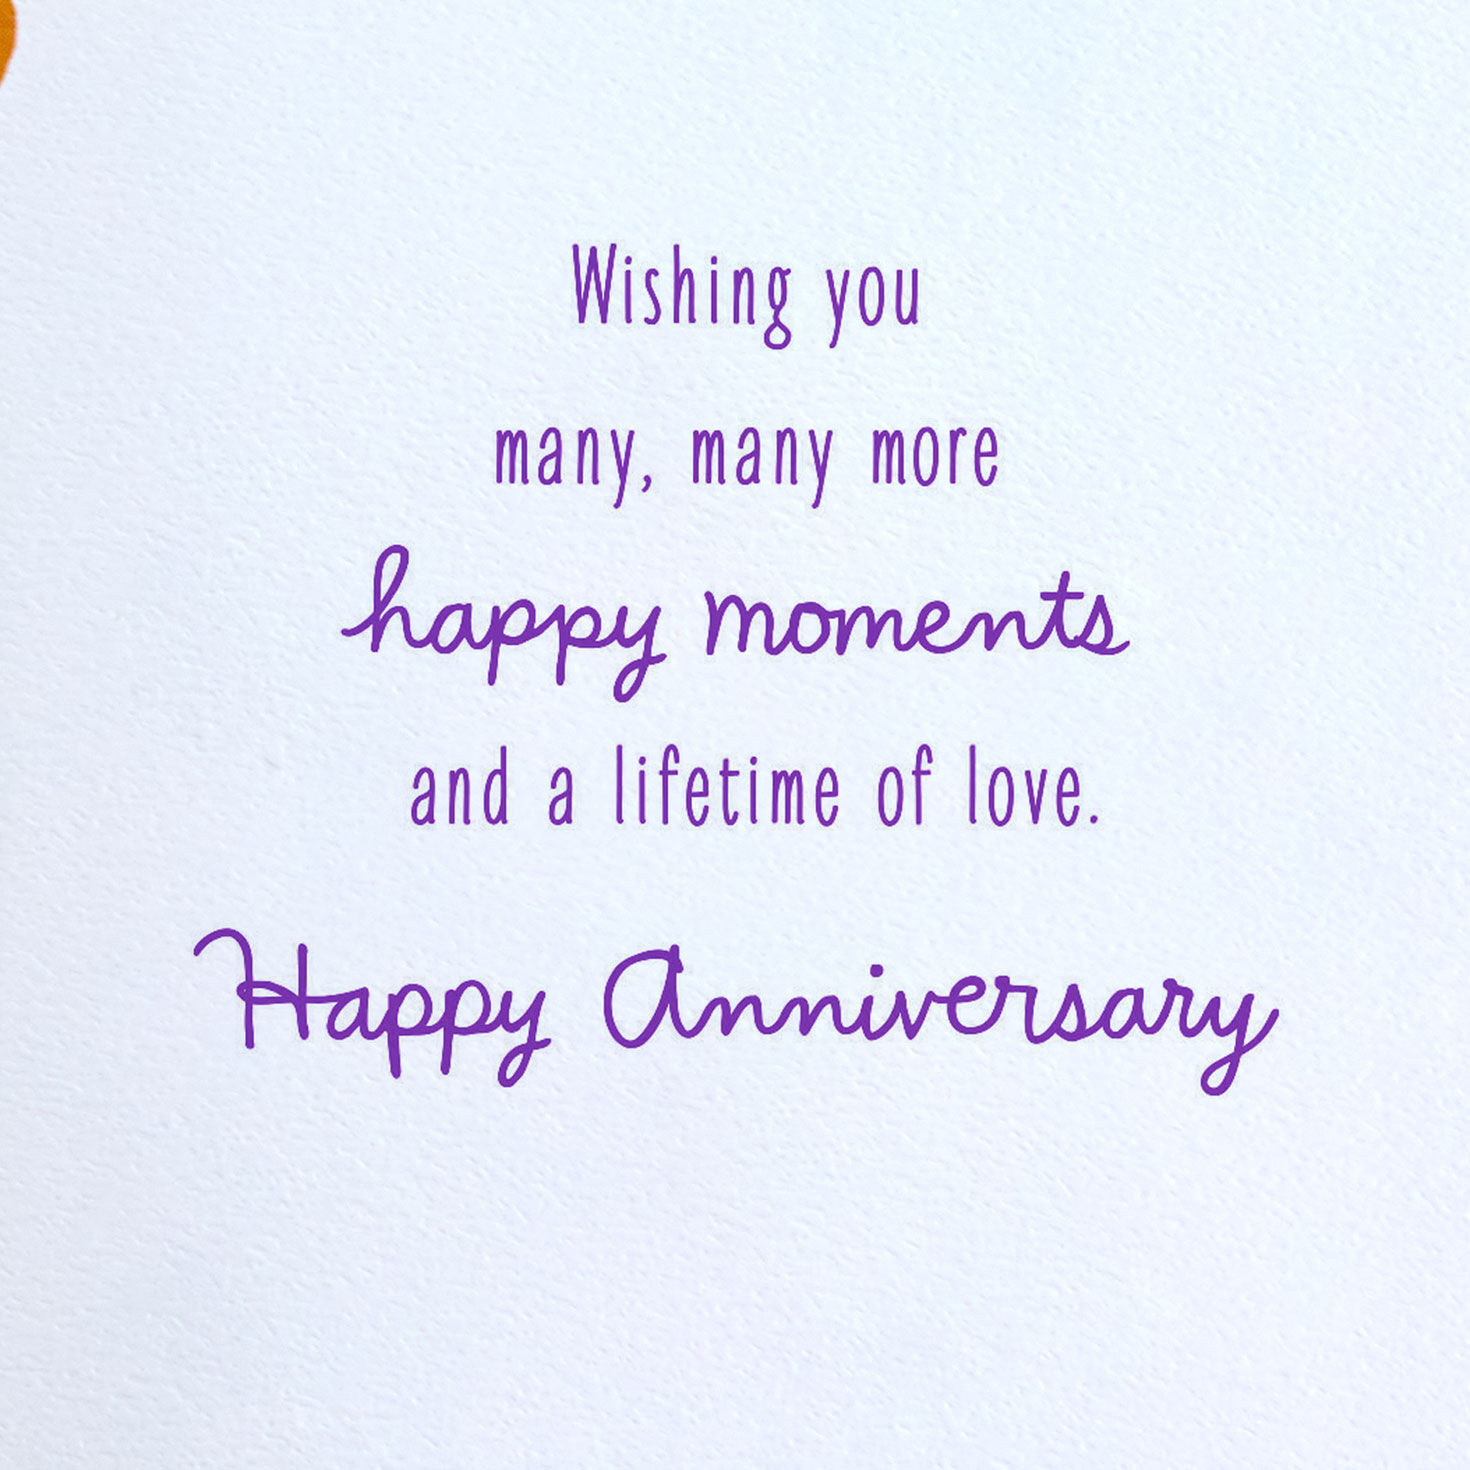 Wishing you
many, many more
happy moments
and a lifetime of love.
Happy Anniversary